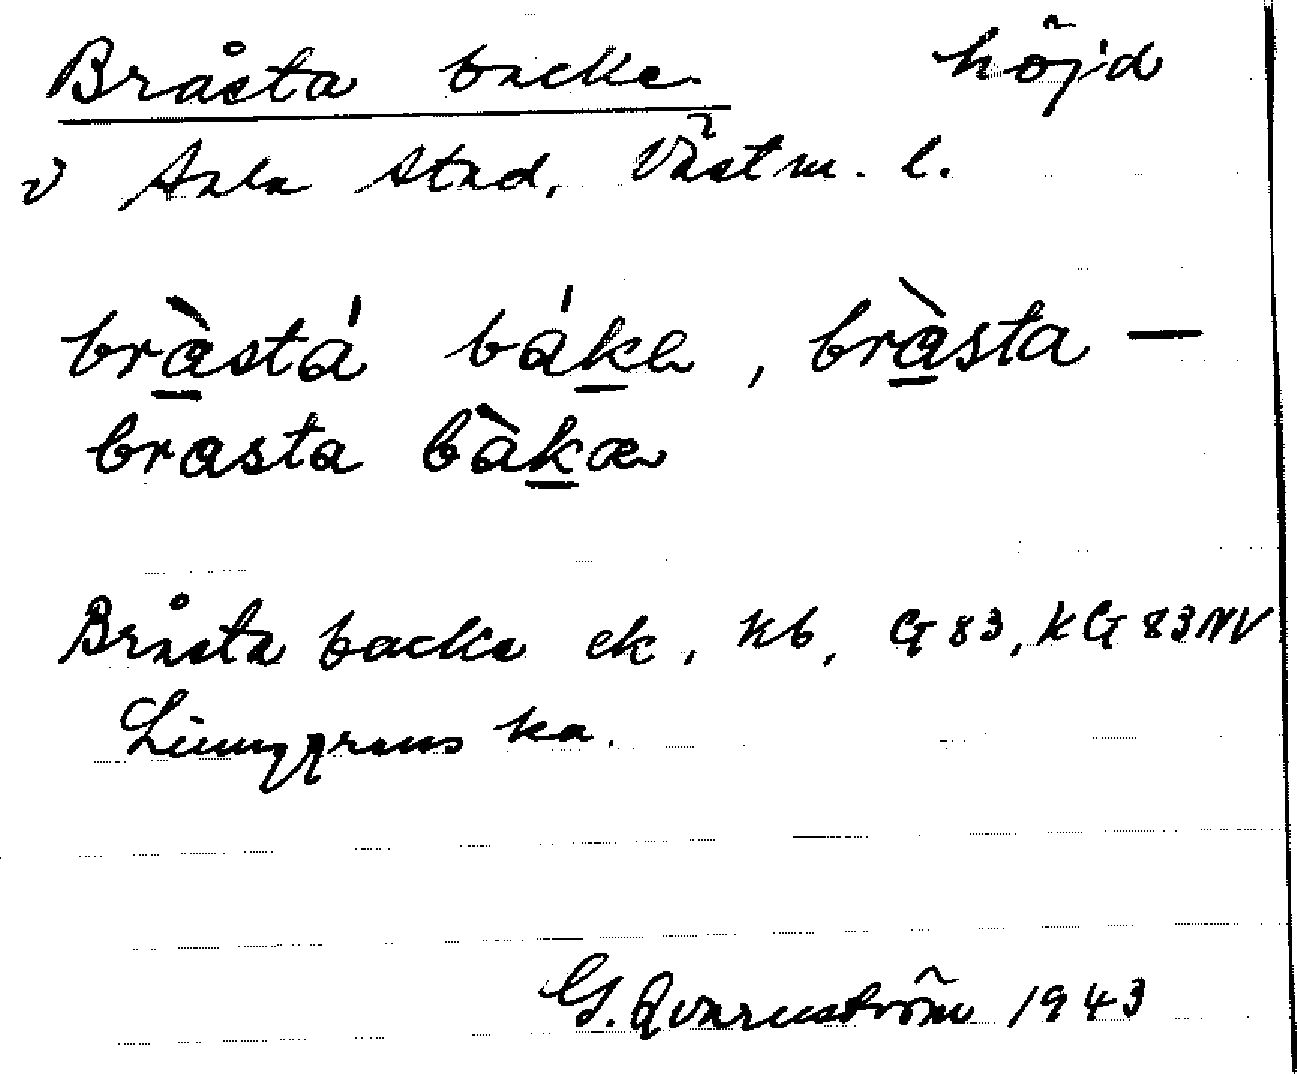 Bråsta backe höjd
v Sala stad, Västm. l.
bràstá bákɐ, bràsta —
brasta bàkæ
Bråsta backe ek, kb, G 83, KG 83 NV
Ljunggrens ka.
G. Qvarnström 1943